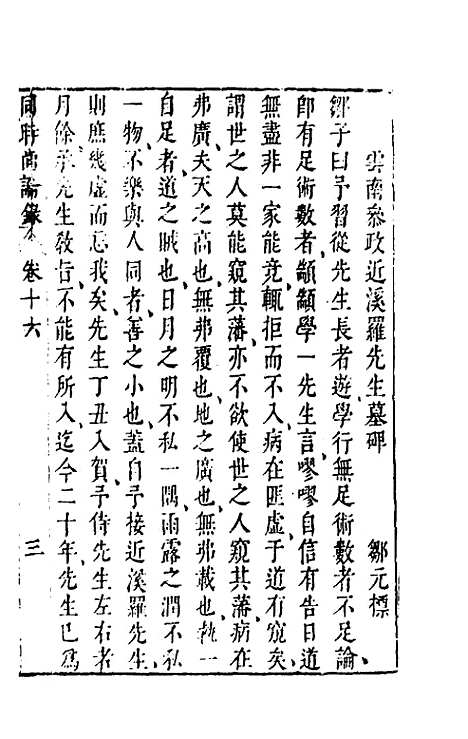 雲南參政近溪羅先生墓碑　鄒元標
鄒子曰予習從先生長者遊學行無足術數者不足論
即有足術數者顓顓學一先生言嘐嘐自信有告曰道
無盡非一家能竞輒拒而不入病在匪虛于道有窺矣
謂世之人莫能窺其藩亦不欲使世之人窺其藩病在
弗廣夫天之高也無弗覆也地之廣也無弗載也執一
自足者道之賊也日月之明不私一隅雨露之潤不私
一物不樂與人同者善之小也蓋自予接近溪羅先生
則庶幾虛而忘我矣先生丁丑入賀予侍先生左右者
月餘承先生敎旨不能有所入迄今二十年先生已爲
同時尚論錄　卷十六　三